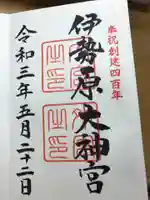 奉祝創建四百年
伊勢原大神宮
令和三年五月二十二日